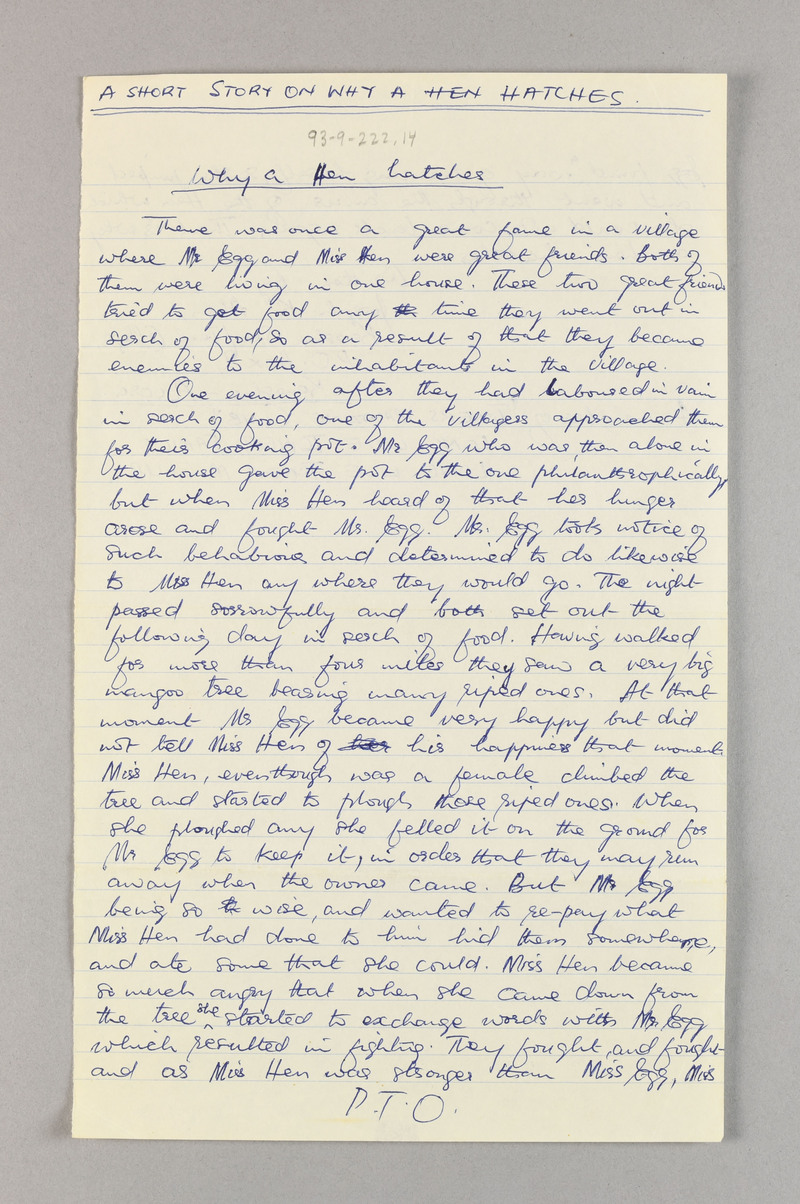 A SHORT STORY ON WHY A HEN HATCHES.
93-9-222,14
Why a Hen hatches
Theme was once a great fame in a village
where Mr Egg and Miss Hen were great friends. Both of
them were living in one house. These two great friends
tried to get food any time they went out in
serch of food, so as a result of that they became
enemies to the inhabitants in the village.
One evening after they had laboured in vain
in serch of food, one of the villagers approached them
for their cooking pot. Mr Egg who was then alone in
the house gave the pot to the one philanthrophically,
but when Miss Hen heard of that her hunger
arose and fought Mr. Egg. Mr. Egg took notice of
such behaviour and determined to do likewise
to Miss Hen any where they would go. The night
passed sorrowfully and both set out the
following day in serch of food. Having walked
for more than four miles they saw a very big
mangoo tree bearing many riped ones. At that
moment Mr Egg became very happy but did
not tell Miss Hen of his happiness that moment
Miss Hen, eventhough was a female climbed the
tree and started to plough those riped ones. When
she ploughed any she felled it on the ground for
Mr Egg to keep it, in order that they may run
away when the owner came. But Mr Egg
being so wise, and wanted to re-pay what
Miss Hen had done to him hid them somewhere,
and ate some that she could. Miss Hen became
so much angry that when she came down from
the tree she started to exchange words with Mr. Egg
which resulted in fighting. They fought, and fought
and as Miss Hen was stronger than Miss Egg, Miss
P.T.O.